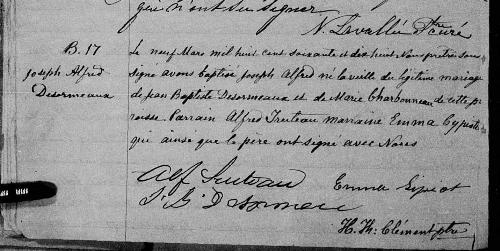 qui n'ont su signer
N. Lavallée Ptre curé
B. 17
Joseph Alfred
Desormeaux
Le neuf Mars mil huit cent soixante et dix huit Nous prêtre sous
signé avons baptisé Joseph Alfred né la veille du légitime mariage
de Jean Baptiste Desormeaux et de Marie Charbonneau de cette pa
roisse Parrain Alfred Truteau marraine Emma Cypiot
qui ainsi que le père ont signé avec Nous
Alf Truteau
Emma Sipiot
J. B. Desormeau
H. Th: Clément ptre